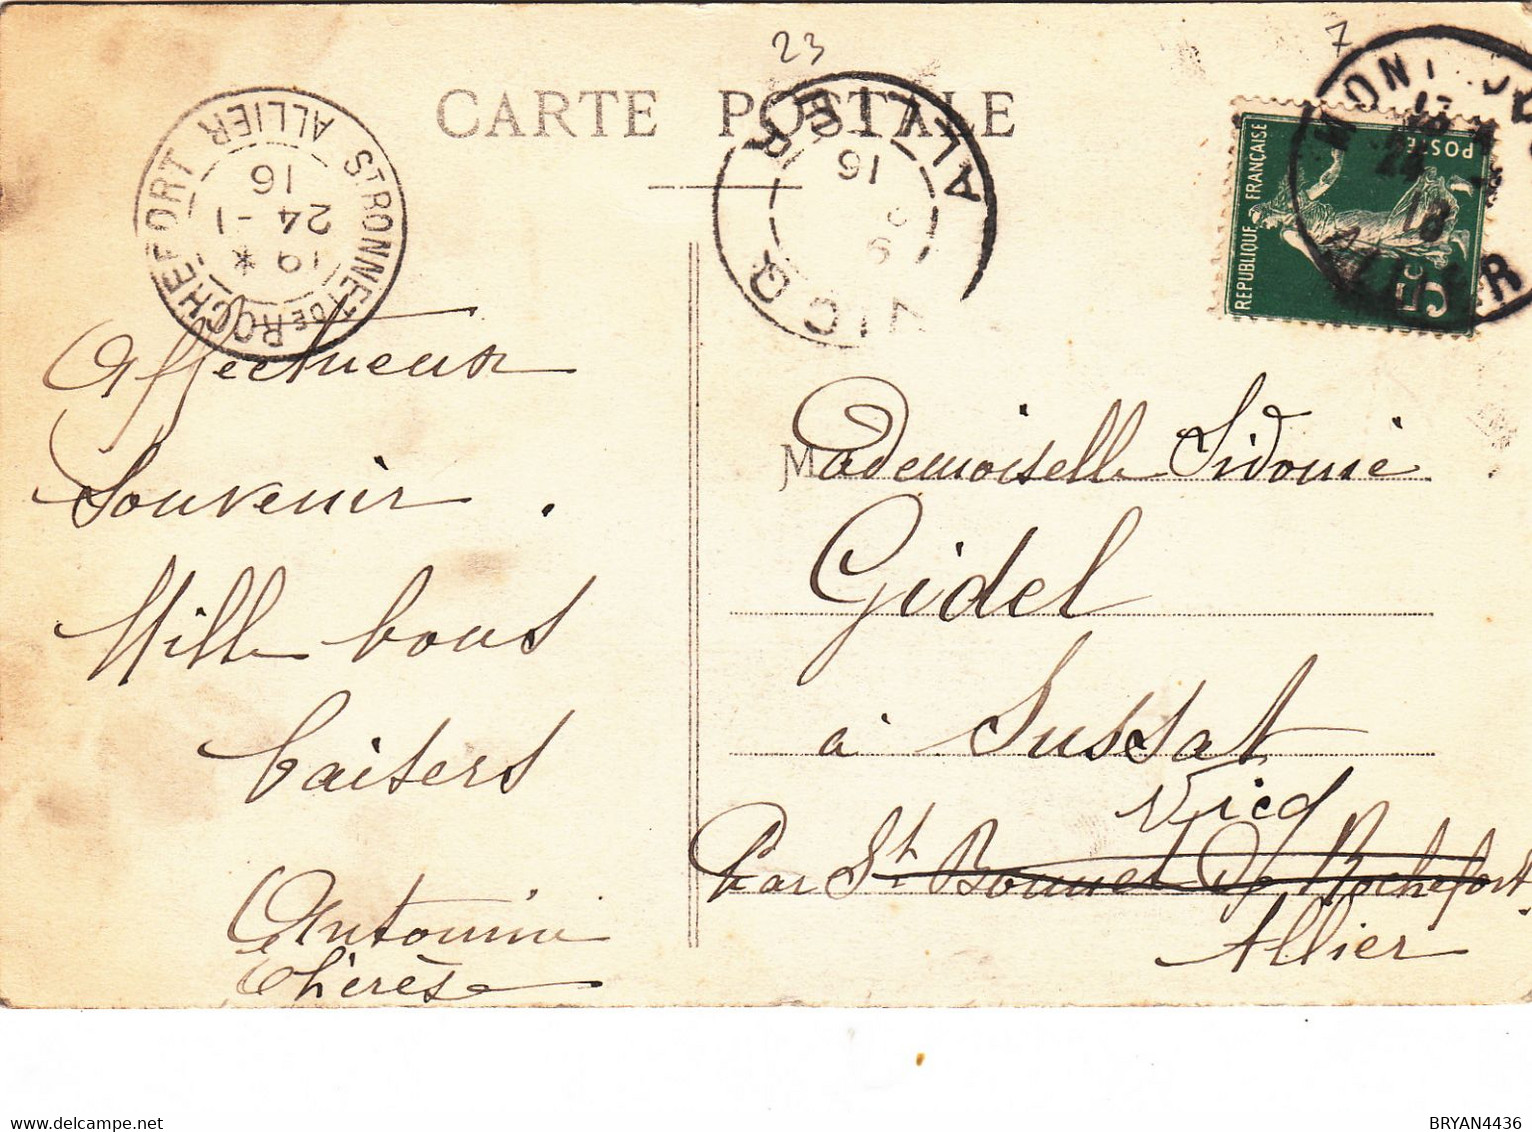 23
7
CARTE POSTALE
ST BONNET DE ROCHEFORT
ALLIER
19 *
24 - 1
16
VICQ
ALLIER
16
REPUBLIQUE FRANÇAISE
POSTES
5c
ALLIER
Affectueux
Souvenir.
Mille bons
baisers
Antonine
Thérèse
Mademoiselle Sidonie
Gidel
à Sussat
Vicq
Par St Bonnet De Rochefort
Allier
BRYAN4436